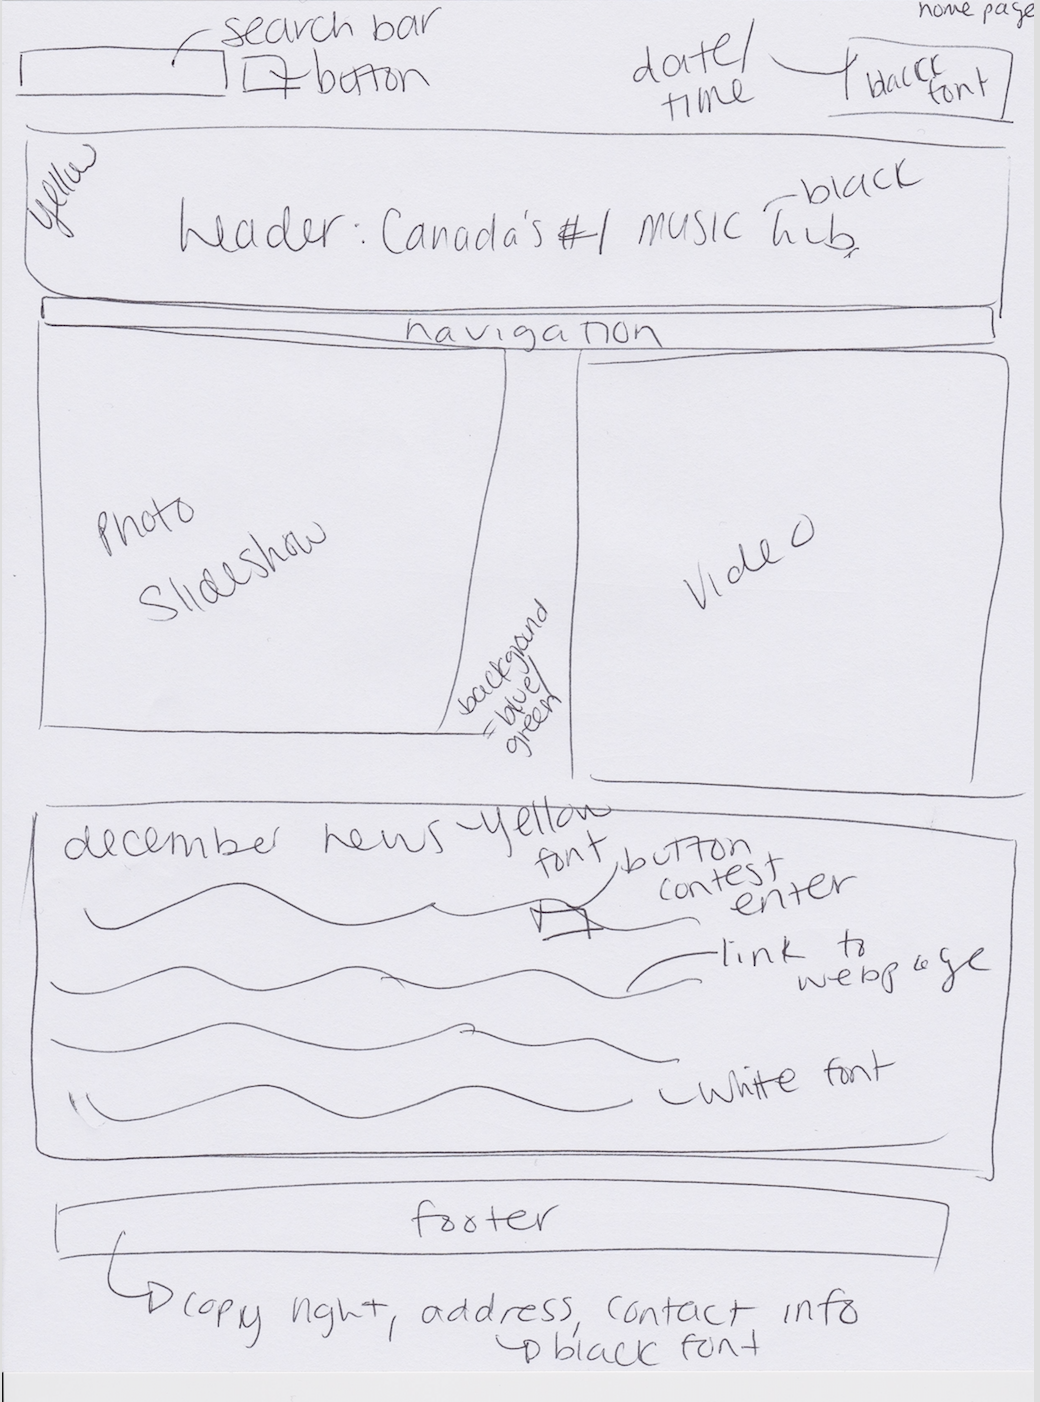 home page
search bar
button
date/
time
black
font
yellow
black
header: Canada's #1 music hub
navigation
Photo
Slideshow
Video
background
= blue/
green
december news
yellow
font
button
contest
enter
link to
webpage
white font
footer
copy right, address, contact info
black font